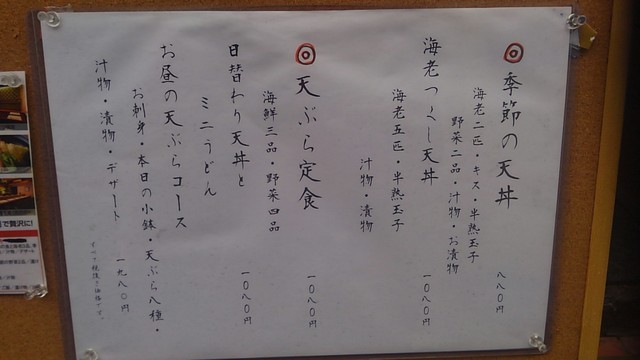 季節の天丼
海老二匹・キス・半熟玉子
野菜二品・汁物・お漬物
八八〇円
海老つくし天丼
海老五匹・半熟玉子
汁物・漬物
一〇八〇円
天ぷら定食
海鮮三品・野菜四品
一〇八〇円
日替わり天丼と
ミニうどん
一〇八〇円
お昼の天ぷらコース
お刺身・本日の小鉢・天ぷら八種・
汁物・漬物・デザート
一九八〇円
すべて税抜き価格です。
で贅沢に!